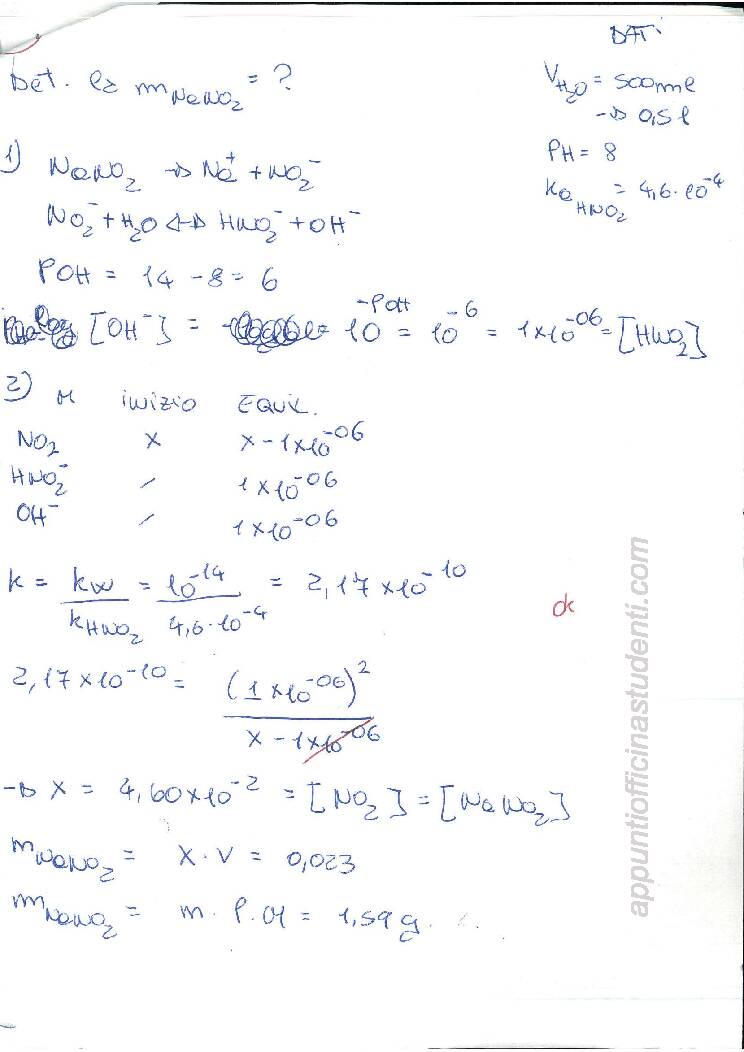 DATI
Det. la m NaNO2 = ?
V H2O = 500ml
→ 0,5 l
PH = 8
Ka HNO2 = 4,6·10^-4
1) NaNO2 → Na+ + NO2-
NO2- + H2O ↔ HNO2- + OH-
POH = 14 - 8 = 6
[OH-] = 10^-POH = 10^-6 = 1×10^-06 = [HNO2]
2) M inizio EQUIL.
NO2 x x - 1×10^-06
HNO2- / 1×10^-06
OH- / 1×10^-06
K = Kw / KHNO2 = 10^-14 / 4,6·10^-4 = 2,17×10^-10
ok
2,17×10^-10 = (1×10^-06)^2 / x - 1×10^-06
→ X = 4,60×10^-2 = [NO2] = [NaNO2]
m NaNO2 = X·V = 0,023
m NaNO2 = m · P.M = 1,59 g.
appuntiofficinastudenti.com